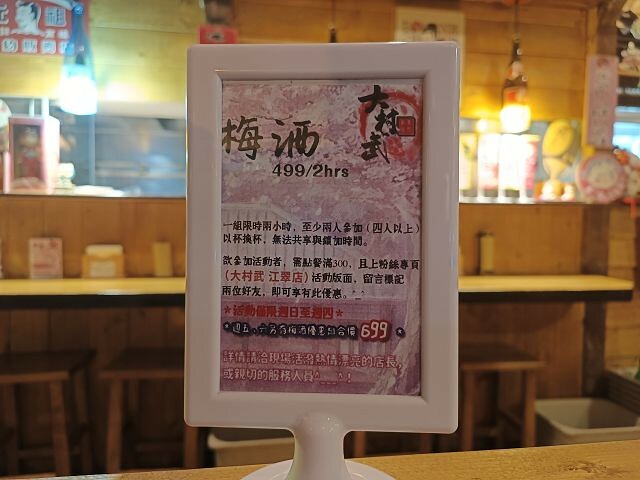 大村武
梅酒
499/2hrs
一組限時兩小時，至少兩人參加（四人以上）
以杯換杯，無法共享與續加時間。
欲參加活動者，需點餐滿300，且上粉絲專頁
（大村武 江翠店）活動版面，留言標記
兩位好友，即可享有此優惠。^_^
*活動僅限週日至週四*
*週五、六另有梅酒優惠組合價 699 *
詳情請洽現場活潑熱情漂亮的店長，
或親切的服務人員^___^！